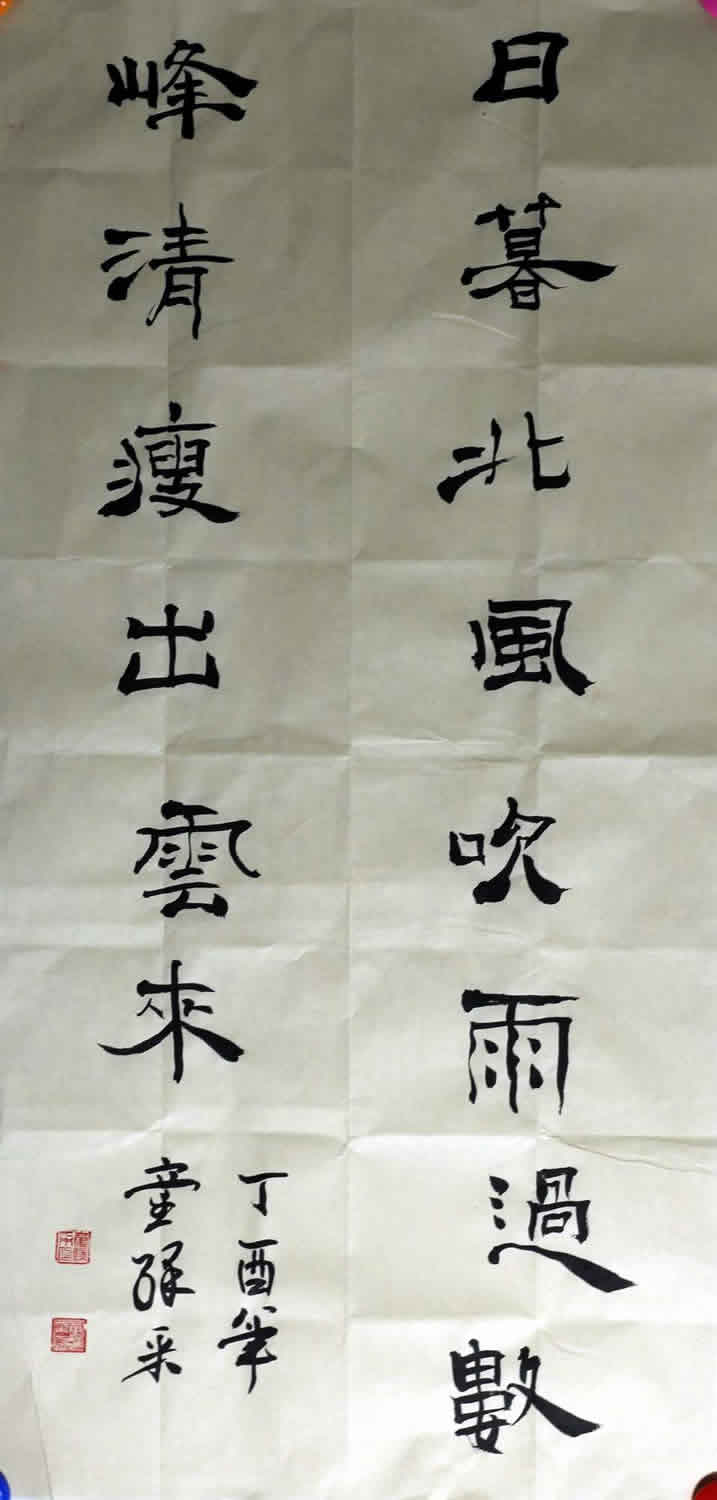 日暮北風吹雨過數
峰清瘦出雲來
丁酉年
童
采